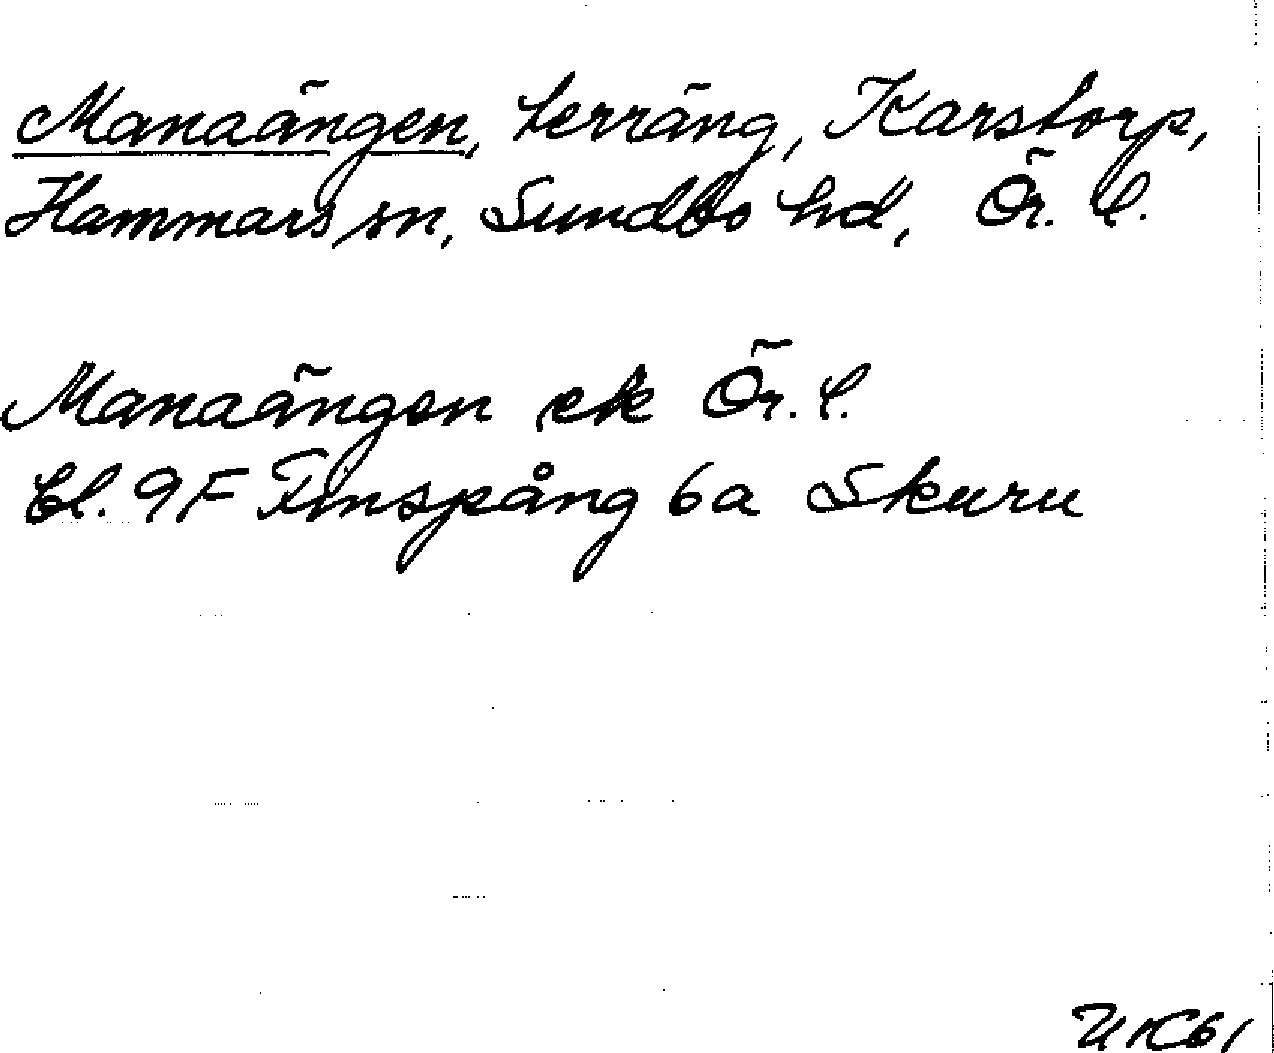 Manaängen, terräng, Karstorp,
Hammars sn, Sundbo hd, Ör. l.
Manaängen ek Ör. l.
bl. 9F Finspång 6a Skuru
UK61